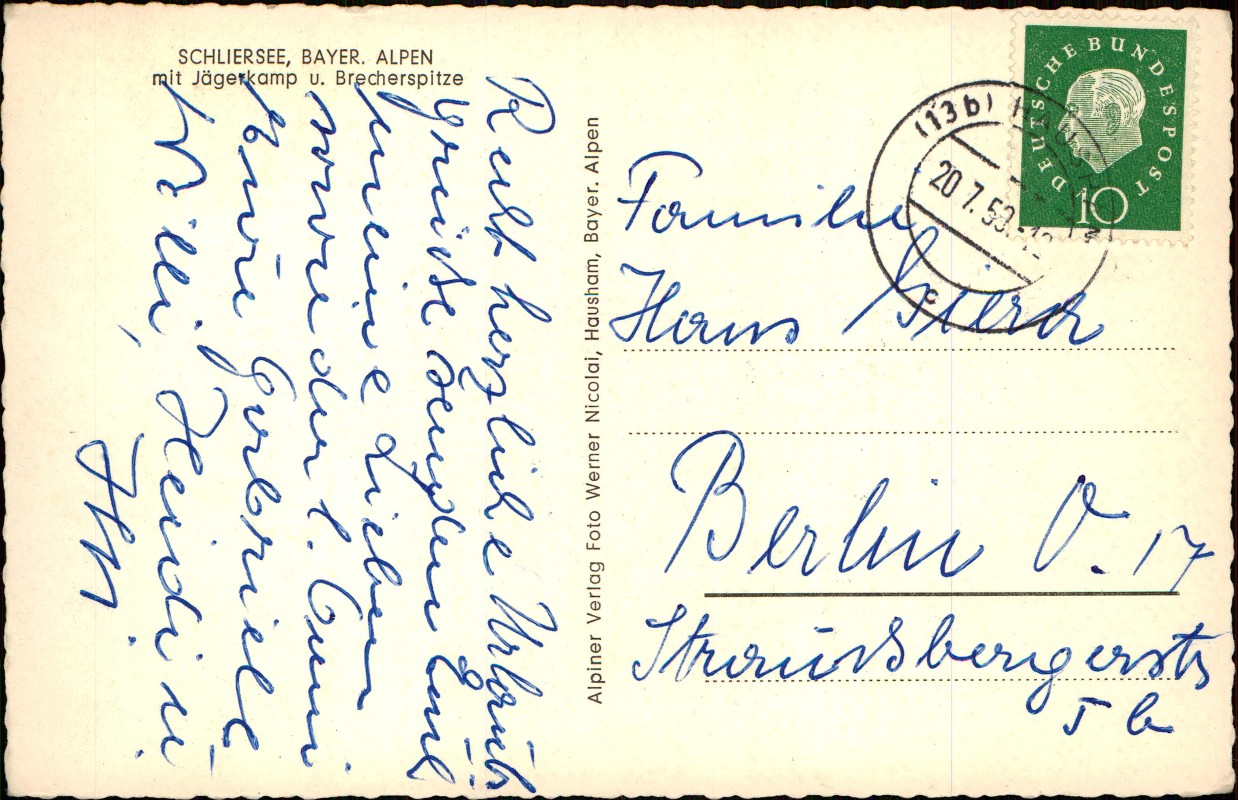 SCHLIERSEE, BAYER. ALPEN
mit Jägerkamp u. Brecherspitze
Recht herzliche Urlaubs
grüße senden Euch
meine Lieben
sowie der l. Omi
Eure Gabriele
Willi, Heidi u.
Alpiner Verlag Foto Werner Nicolai, Hausham, Bayer. Alpen
DEUTSCHE BUNDESPOST
10
(13b)
20.7.59
c
Familie
Hans
Berlin O. 17
Straußbergerstr
5 b